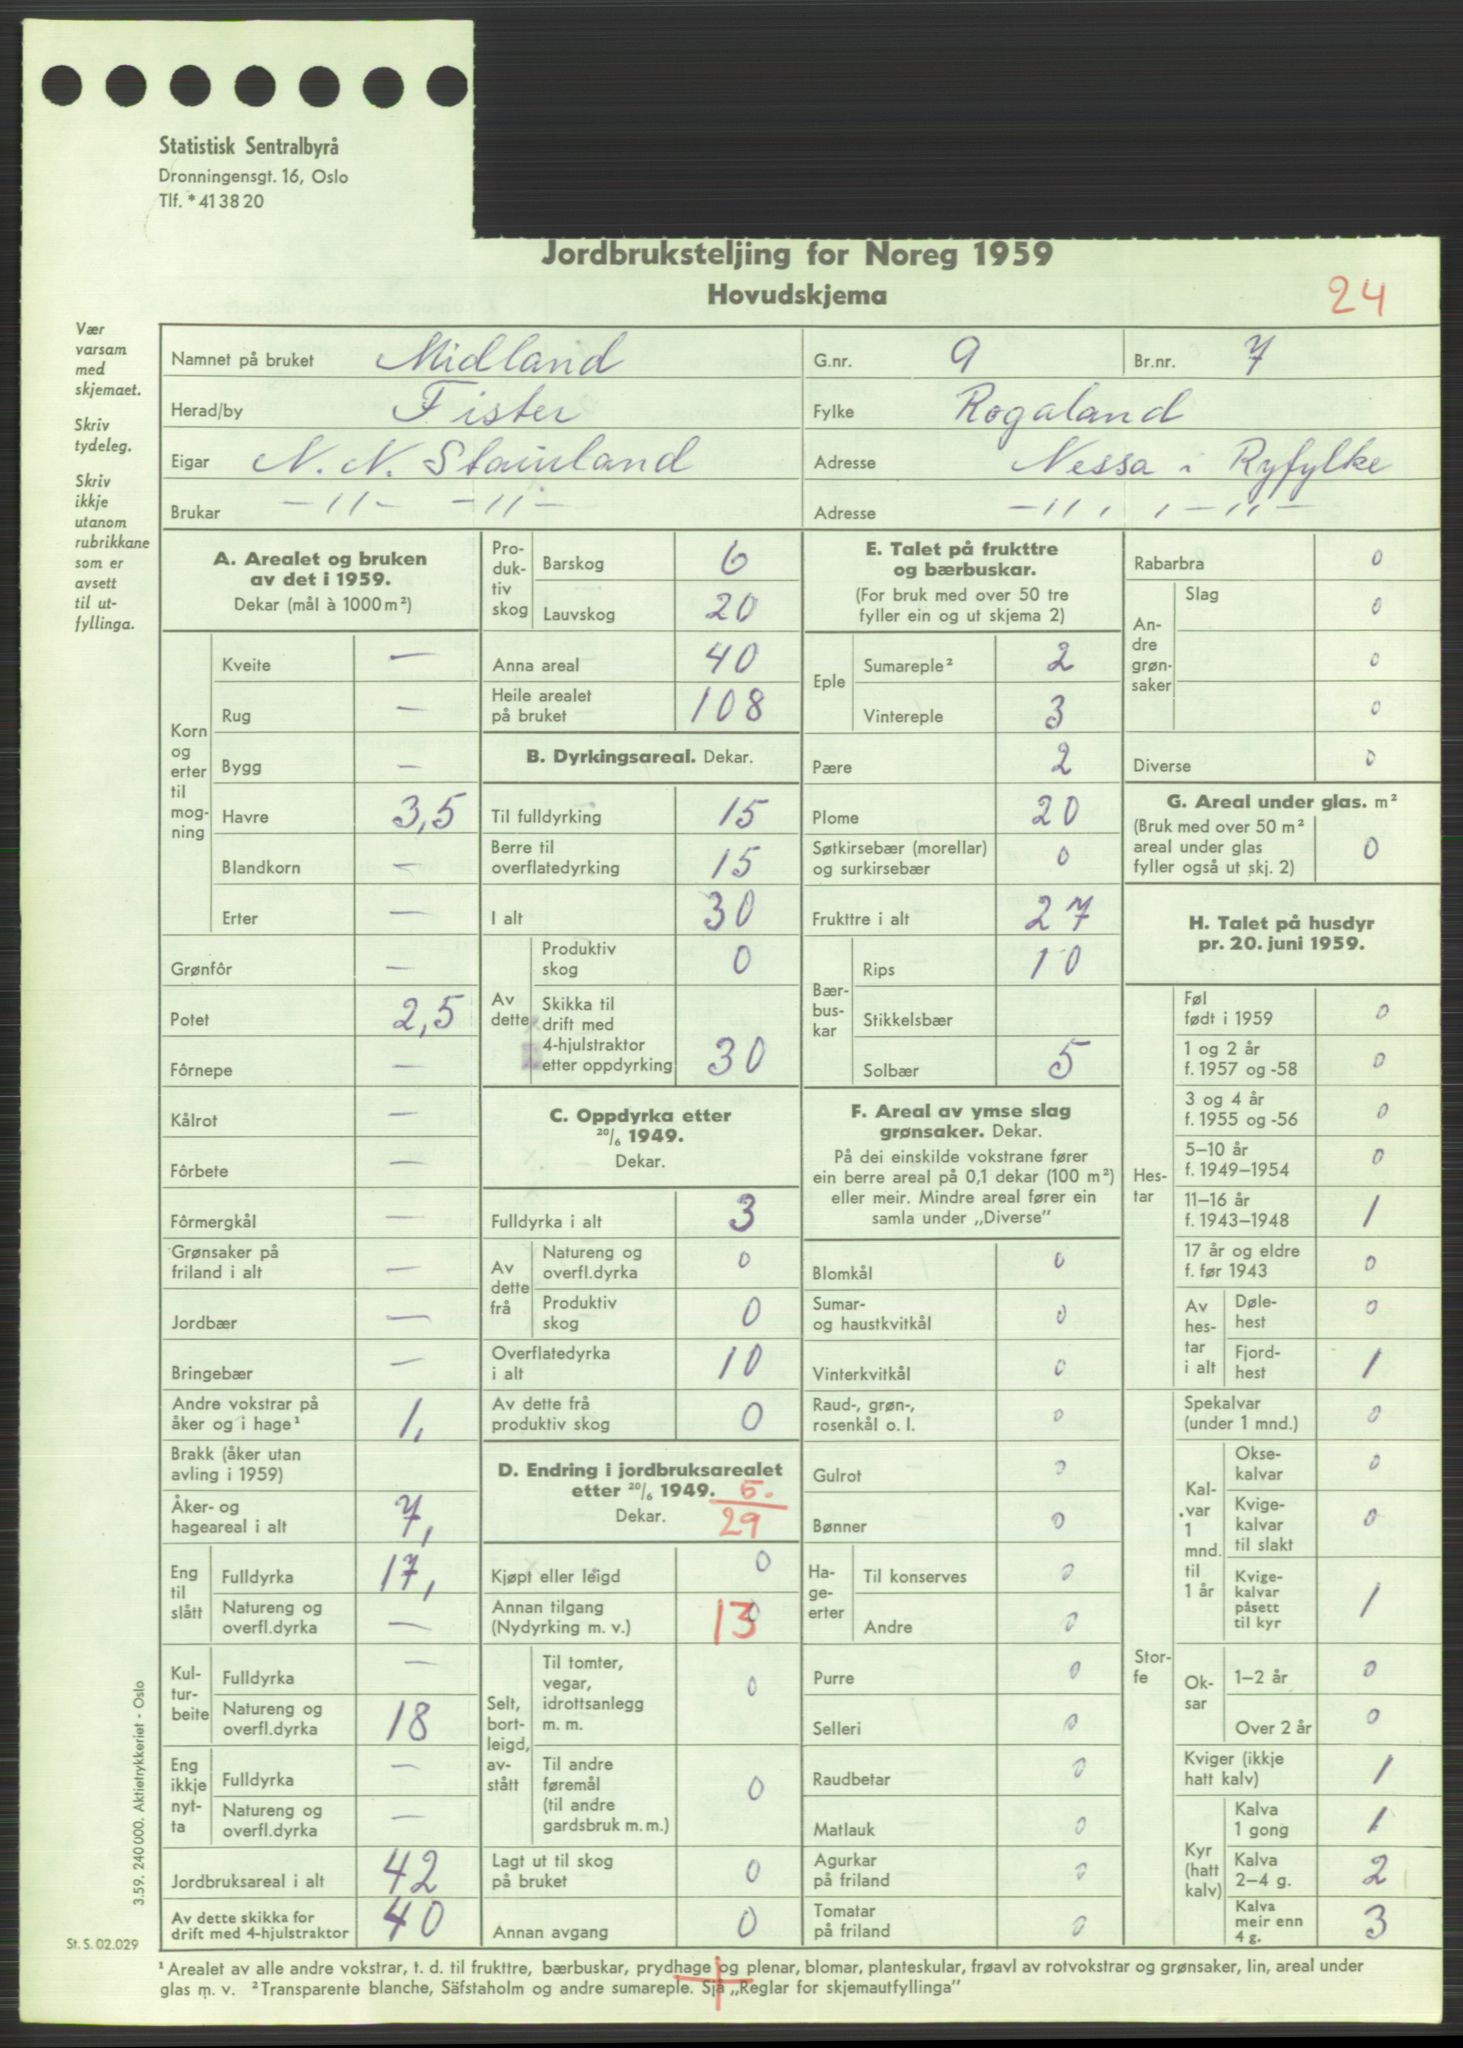 Statistisk Sentralbyrå
Dronningensgt. 16, Oslo
Tlf. *41 38 20
Jordbruksteljing for Noreg 1959
Hovudskjema
24
Vær
varsam
med
skjemaet.
Skriv
tydeleg.
Skriv
ikkje
utanom
rubrikkane
som er
avsett
til ut-
fyllinga.
Namnet på bruket Midland G.nr. 9 Br.nr. 7
Herad/by Fister Fylke Rogaland
Eigar N. N. Stainland Adresse Nessa i Ryfylke
Brukar —〃— —〃— Adresse —〃— —〃—
A. Arealet og bruken
av det i 1959.
Dekar (mål à 1000 m²)
Korn og erter til mog-ning
Kveite —
Rug —
Bygg —
Havre 3,5
Blandkorn —
Erter —
Grønfôr —
Potet 2,5
Fôrnepe —
Kålrot —
Fôrbete —
Fôrmergkål —
Grønsaker på
friland i alt —
Jordbær —
Bringebær —
Andre vokstrar på
åker og i hage¹ 1,
Brakk (åker utan
avling i 1959)
Åker- og
hageareal i alt 7,
Eng til slått
Fulldyrka 17,
Natureng og
overfl.dyrka —
Kul-tur-beite
Fulldyrka —
Natureng og
overfl.dyrka 18
Eng ikkje nyt-ta
Fulldyrka —
Natureng og
overfl.dyrka —
Jordbruksareal i alt 42
Av dette skikka for
drift med 4-hjulstraktor 40
Pro-duk-tiv skog
Barskog 6
Lauvskog 20
Anna areal 40
Heile arealet
på bruket 108
B. Dyrkingsareal. Dekar.
Til fulldyrking 15
Berre til
overflatedyrking 15
I alt 30
Av dette
Produktiv
skog 0
Skikka til
drift med
4-hjulstraktor
etter oppdyrking 30
C. Oppdyrka etter
20/6 1949.
Dekar.
Fulldyrka i alt 3
Av dette frå
Natureng og
overfl.dyrka 0
Produktiv
skog 0
Overflatedyrka
i alt 10
Av dette frå
produktiv skog 0
D. Endring i jordbruksarealet
etter 20/6 1949. 5.
Dekar. 29
Kjøpt eller leigd 0
Annan tilgang
(Nydyrking m. v.) 0 13
Selt, bort-leigd, av-stått
Til tomter,
vegar,
idrottsanlegg
m. m. 0
Til andre
føremål
(til andre
gardsbruk m. m.) 0
Lagt ut til skog
på bruket 0
Annan avgang 0
E. Talet på frukttre
og bærbuskar.
(For bruk med over 50 tre
fyller ein og ut skjema 2)
Eple
Sumareple² 2
Vintereple 3
Pære 2
Plome 20
Søtkirsebær (morellar)
og surkirsebær 0
Frukttre i alt 27
Bær-bus-kar
Rips 10
Stikkelsbær
Solbær 5
F. Areal av ymse slag
grønsaker. Dekar.
På dei einskilde vokstrane fører
ein berre areal på 0,1 dekar (100 m²)
eller meir. Mindre areal fører ein
samla under „Diverse”
Blomkål 0
Sumar-
og haustkvitkål 0
Vinterkvitkål 0
Raud-, grøn-,
rosenkål o. l. 0
Gulrot 0
Bønner 0
Ha-ge-erter
Til konserves 0
Andre 0
Purre 0
Selleri 0
Raudbetar 0
Matlauk 0
Agurkar
på friland 0
Tomatar
på friland 0
Rabarbra 0
An-dre grøn-saker
Slag
0
0
0
Diverse 0
G. Areal under glas. m²
(Bruk med over 50 m²
areal under glas
fyller også ut skj. 2) 0
H. Talet på husdyr
pr. 20. juni 1959.
Hes-tar
Føl
født i 1959 0
1 og 2 år
f. 1957 og -58 0
3 og 4 år
f. 1955 og -56 0
5–10 år
f. 1949–1954 0
11–16 år
f. 1943–1948 1
17 år og eldre
f. før 1943 0
Av hes-tar i alt
Døle-
hest 0
Fjord-
hest 1
Stor-fe
Spekalvar
(under 1 mnd.) 0
Kal-var 1 mnd. til 1 år
Okse-
kalvar 0
Kvige-
kalvar
til slakt 0
Kvige-
kalvar
påsett
til kyr 1
Ok-sar
1–2 år 0
Over 2 år 0
Kviger (ikkje
hatt kalv) 1
Kyr (hatt kalv)
Kalva
1 gong 1
Kalva
2–4 g. 2
Kalva
meir enn
4 g. 3
3.59. 240 000. Aktietrykkeriet - Oslo
St. S. 02.029
¹ Arealet av alle andre vokstrar, t. d. til frukttre, bærbuskar, prydhage og plenar, blomar, planteskular, frøavl av rotvokstrar og grønsaker, lin, areal under
glas m. v. ² Transparente blanche, Säfstaholm og andre sumareple. Sjå „Reglar for skjemautfyllinga”